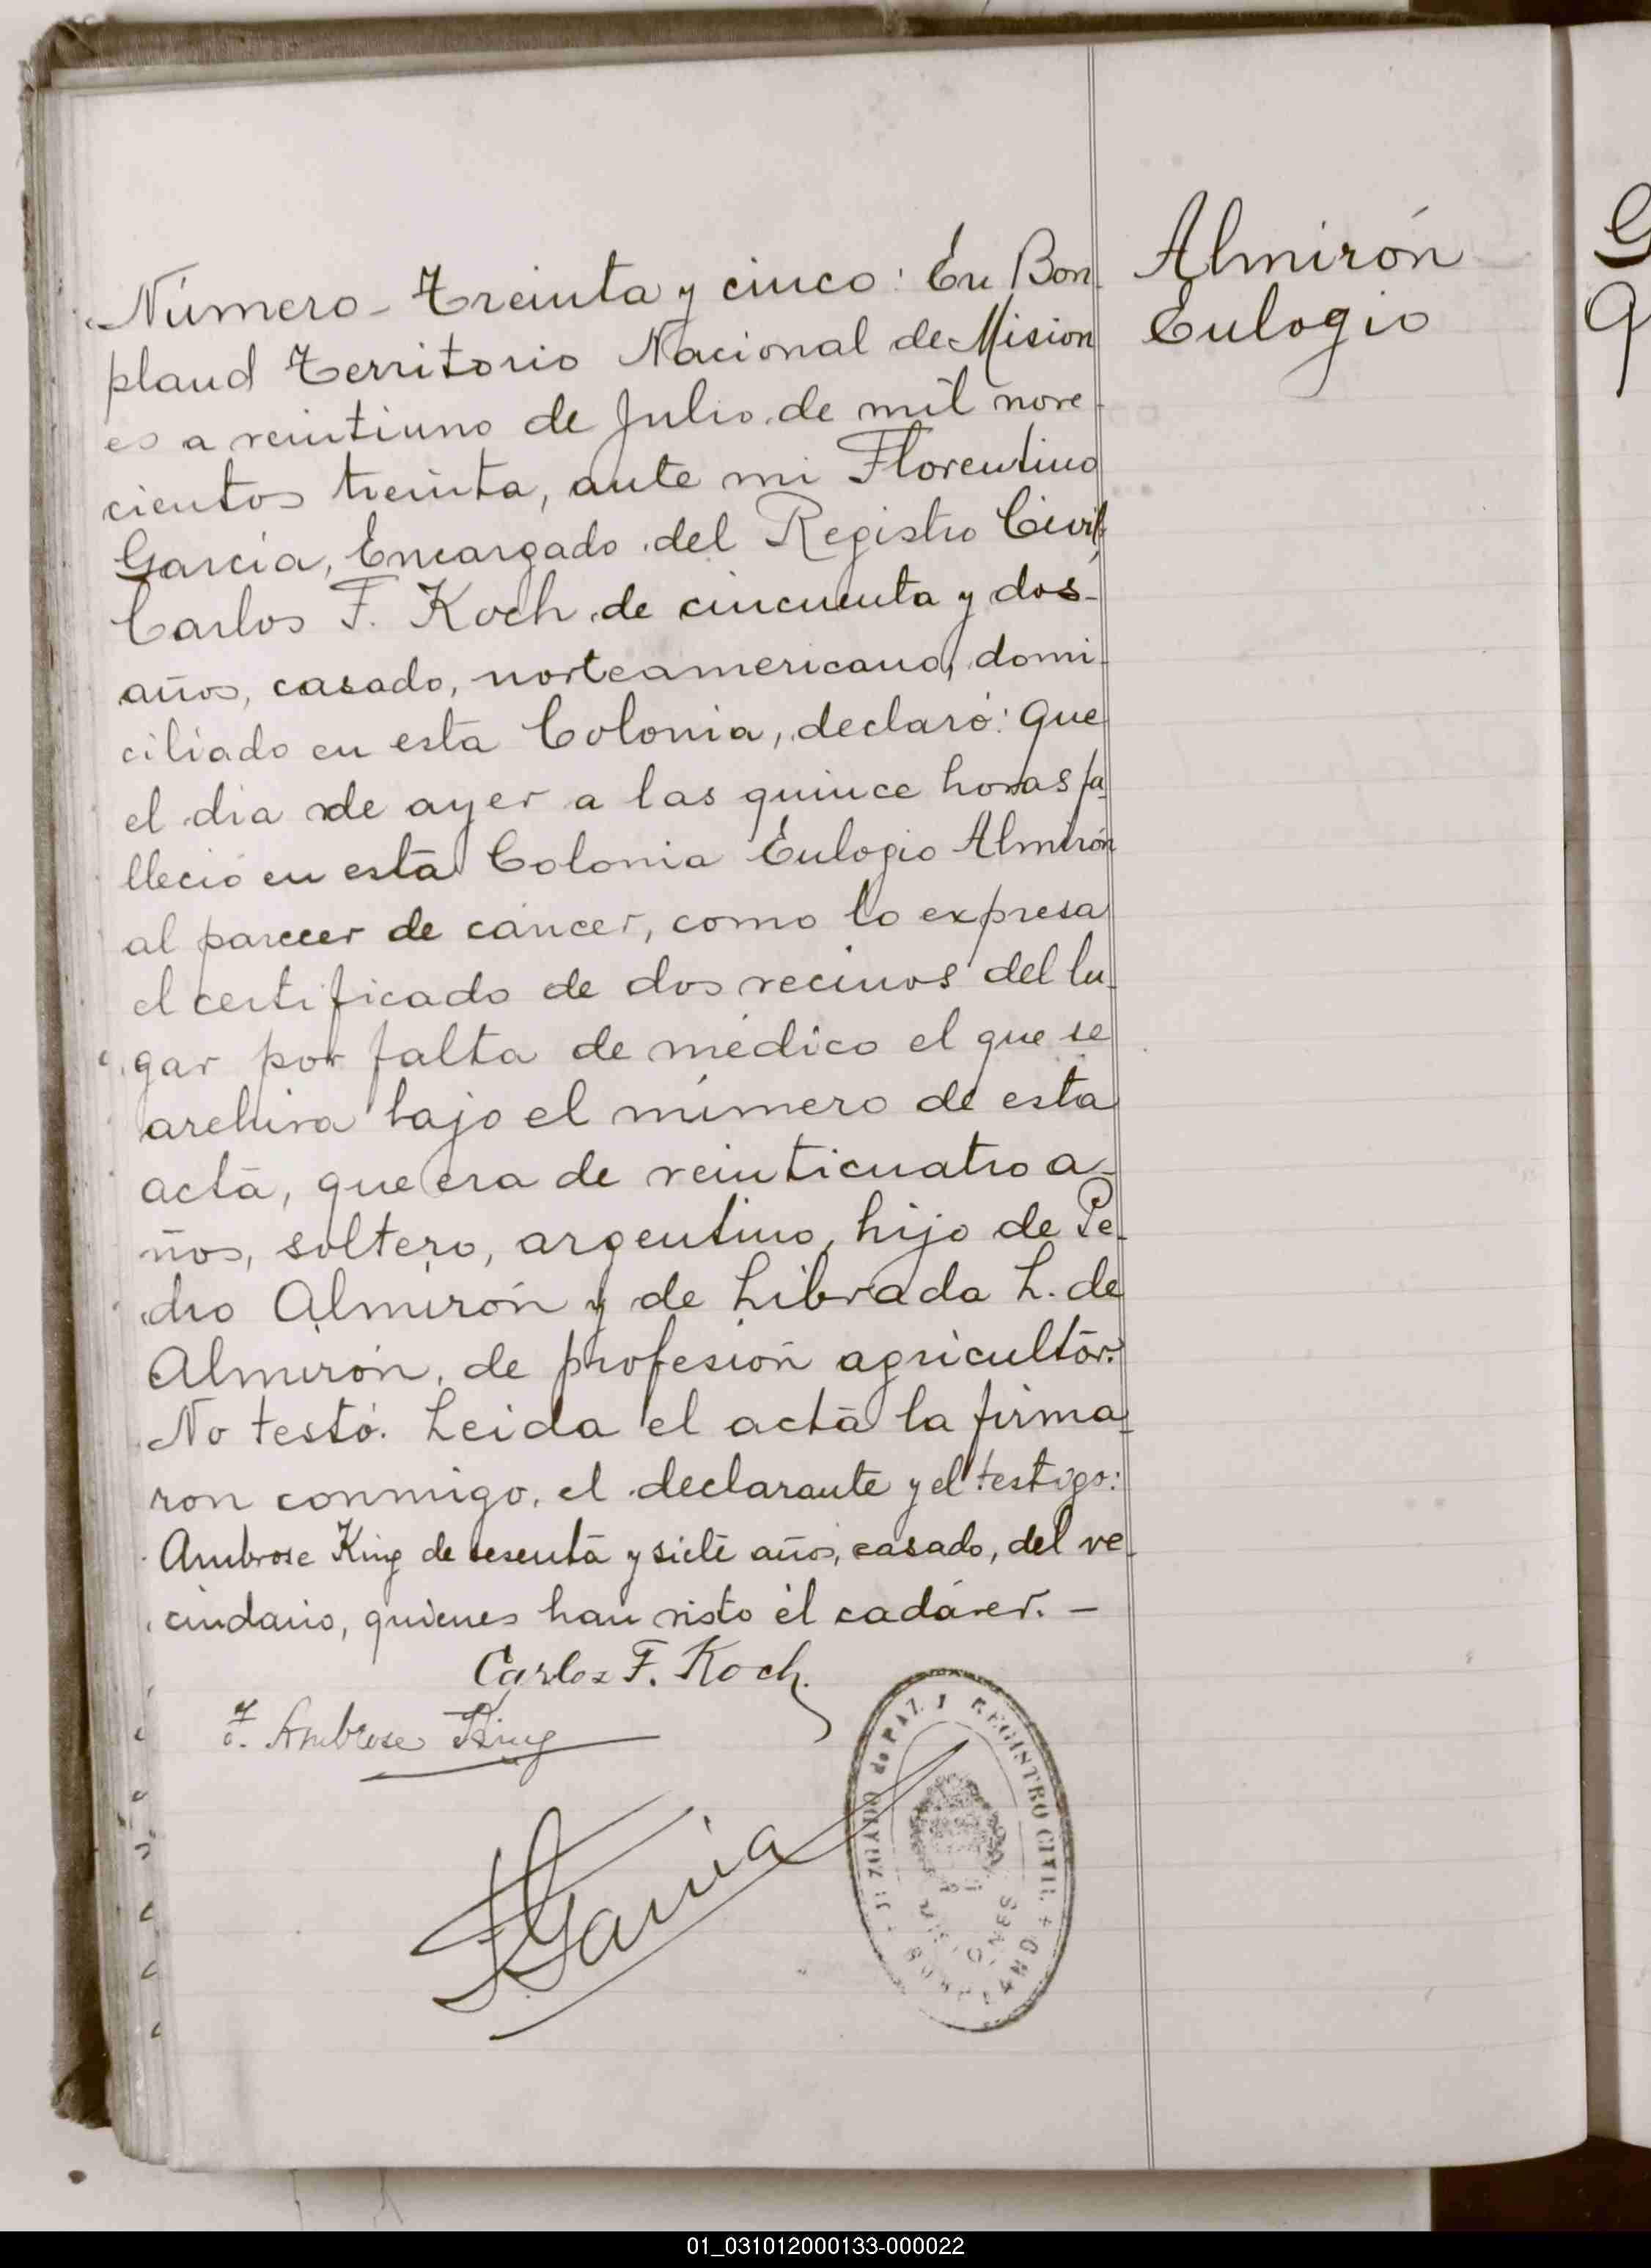 Almirón
Eulogio
Número - Treinta y cinco: En Bon-
pland Territorio Nacional de Mision
es a veintiuno de Julio de mil nove-
cientos treinta, ante mi Florentino
García, Encargado del Registro Civil,
Carlos F. Koch de cincuenta y dos-
años, casado, norteamericano, domi-
ciliado en esta Colonia, declaró: Que
el dia de ayer a las quince horas fa-
lleció en esta Colonia Eulogio Almirón
al parecer de cáncer, como lo expresa
el certificado de dos vecinos del lu-
gar por falta de médico el que se
archiva bajo el número de esta
acta, que era de veinticuatro a-
ños, soltero, argentino, hijo de Pe-
dro Almirón y de Librada L. de
Almirón, de profesión agricultor.
No testó. Leida el acta la firma-
ron conmigo, el declarante y el testigo:
Ambrose King de sesenta y siete años, casado, del ve-
cindario, quienes han visto el cadáver. —
Carlos F. Koch.
Ambrose King
FGarcia
JUZGADO de PAZ Y REGISTRO CIVIL + BONPLAND
MISIONES
01_031012000133-000022